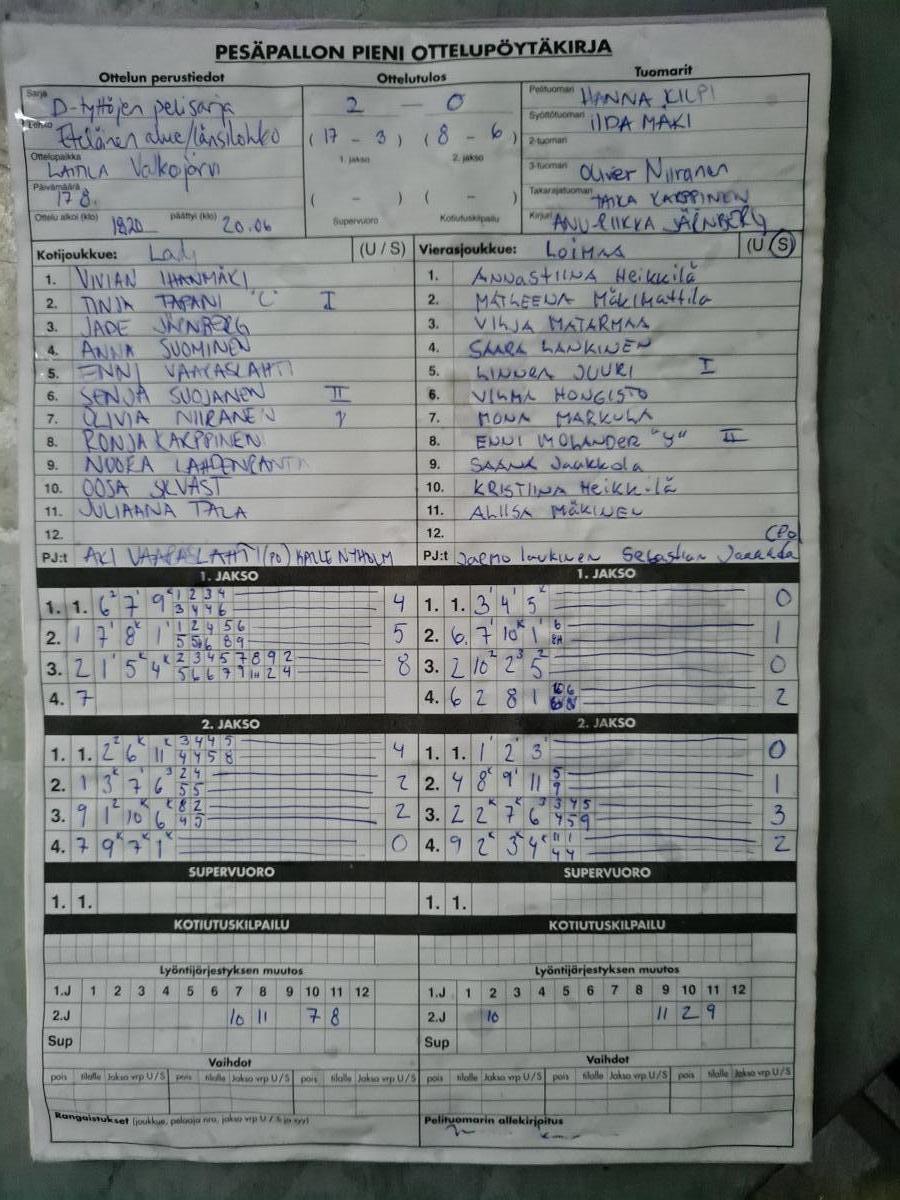 PESÄPALLON PIENI OTTELUPÖYTÄKIRJA
Ottelun perustiedot Ottelutulos Tuomarit
Sarja D-tyttöjen pelisarja
Lohko Eteläinen alue/länsilohko
Ottelupaikka LAITILA Valkojärvi
Päivämäärä 17 8.
Ottelu alkoi (klo) 1820 päättyi (klo) 20.06
2 - 0
( 17 - 3 ) ( 8 - 6 )
1. jakso 2. jakso
( - ) ( - )
Supervuoro Kotiutuskilpailu
Pelituomari HANNA KILPI
Syöttötuomari IIDA MÄKI
2-tuomari
3-tuomari Oliver Niiranen
Takarajatuomari TAIKA KARPPINEN
Kirjuri ANU-RIIKKA JÄRNBERG
Kotijoukkue: (U / S)
1. VIVIAN IHANMÄKI
2. TINJA TAPANI "C" I
3. JADE JÄRNBERG
4. ANNA SUOMINEN
5. ENNI VAAKASLAHTI
6. SENJA SUOJANEN II
7. OLIVIA NIIRANEN
8. RONJA KARPPINEN
9. NOORA LAHDENRANTA
10. OOSA SILVAST
11. JULIAANA TALA
12.
PJ:t AKI VAAKASLAHTI (PO) KALLE NYHOLM
Vierasjoukkue: Loimaa (U / S)
1. ANNASTIINA Heikkilä
2. MATLEENA MäkiMattila
3. VILJA MATARMAA
4. SAARA LANKINEN
5. LINNEA JUURI I
6. VILMA HONGISTO
7. MONA MARKULA
8. ENNI MOLANDER "y" II
9. SAANA Jaakkola
10. KRISTIINA Heikkilä
11. ALIISA MÄKINEN
12. (PO)
PJ:t Jarmo Lankinen Sebastian
1. JAKSO
1. 1. 6² 7' 9ᵏ 1 2 3 4 4
3 4 4 6
2. 1 7' 8ᵏ 1' 1 2 4 5 6 5
3. 2 1' 5² 4ᵏ 2 3 4 5 7 8 9 2 8
4. 7
1. JAKSO
1. 1. 3' 4' 5ᵏ 0
2. 6. 7' 10ᵏ 1' 6 1
3. 2 10² 2³ 5² 0
4. 6 2 8 1 2
2. JAKSO
1. 1. 2² 6ᵏ 11ᵏ 3 4 4 5 4
4 4 5 8
2. 1 3ᵏ 7' 6³ 2 4 2
5 5
3. 9 1² 10ᵏ 6ᵏ 8 2 2
4 5
4. 7 9ᵏ 7ᵏ 1ᵏ 0
2. JAKSO
1. 1. 1' 2' 3' 0
2. 4 8ᵏ 9' 11 5 1
9
3. 2 2ᵏ 7ᵏ 6³ 3 4 5 3
4 5 9
4. 9 2ᵏ 3ᵏ 4ᵏ 11 1 2
4 4
SUPERVUORO SUPERVUORO
1. 1. 1. 1.
KOTIUTUSKILPAILU KOTIUTUSKILPAILU
Lyöntijärjestyksen muutos
1.J 1 2 3 4 5 6 7 8 9 10 11 12
2.J 10 11 7 8
Sup
Vaihdot
pois tilalle Jakso vrp U / S pois tilalle Jakso vrp U / S pois tilalle Jakso vrp U / S
Rangaistukset (joukkue, pelaaja nro, jakso vrp U / S ja syy)
Lyöntijärjestyksen muutos
1.J 1 2 3 4 5 6 7 8 9 10 11 12
2.J 10 11 2 9
Sup
Vaihdot
pois tilalle Jakso vrp U / S pois tilalle Jakso vrp U / S pois tilalle Jakso vrp U / S
Pelituomarin allekirjoitus